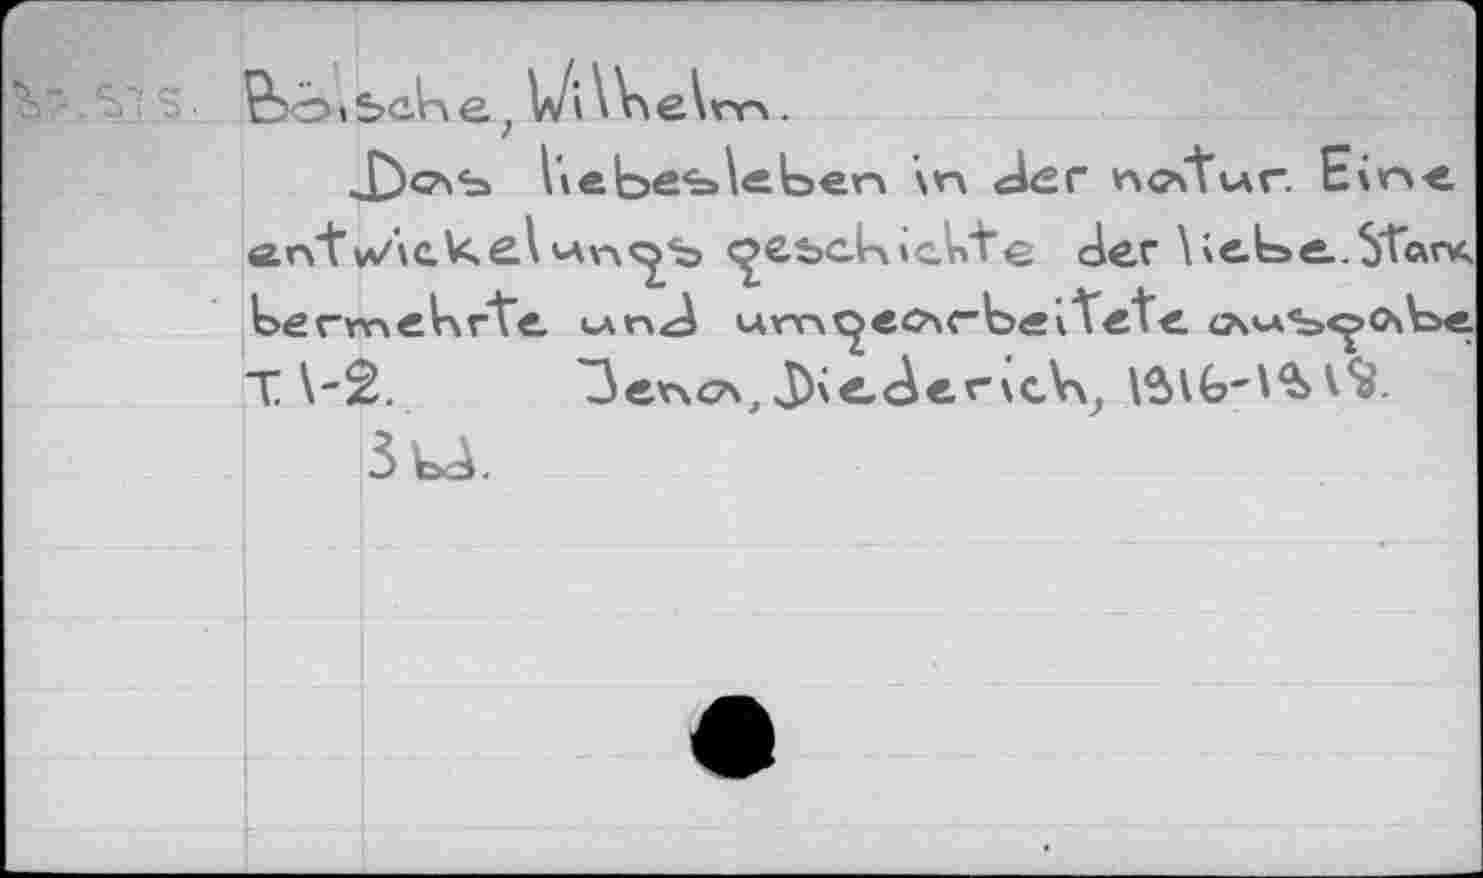 Böische, Wilhelm.
Das liebesleben in der natur. Eine
entwickelungs geschichte der liebe. Stark
bermehrte und umgearbeitete ausgabe
T. 1-2. Jena, Diederich,
3 bd.